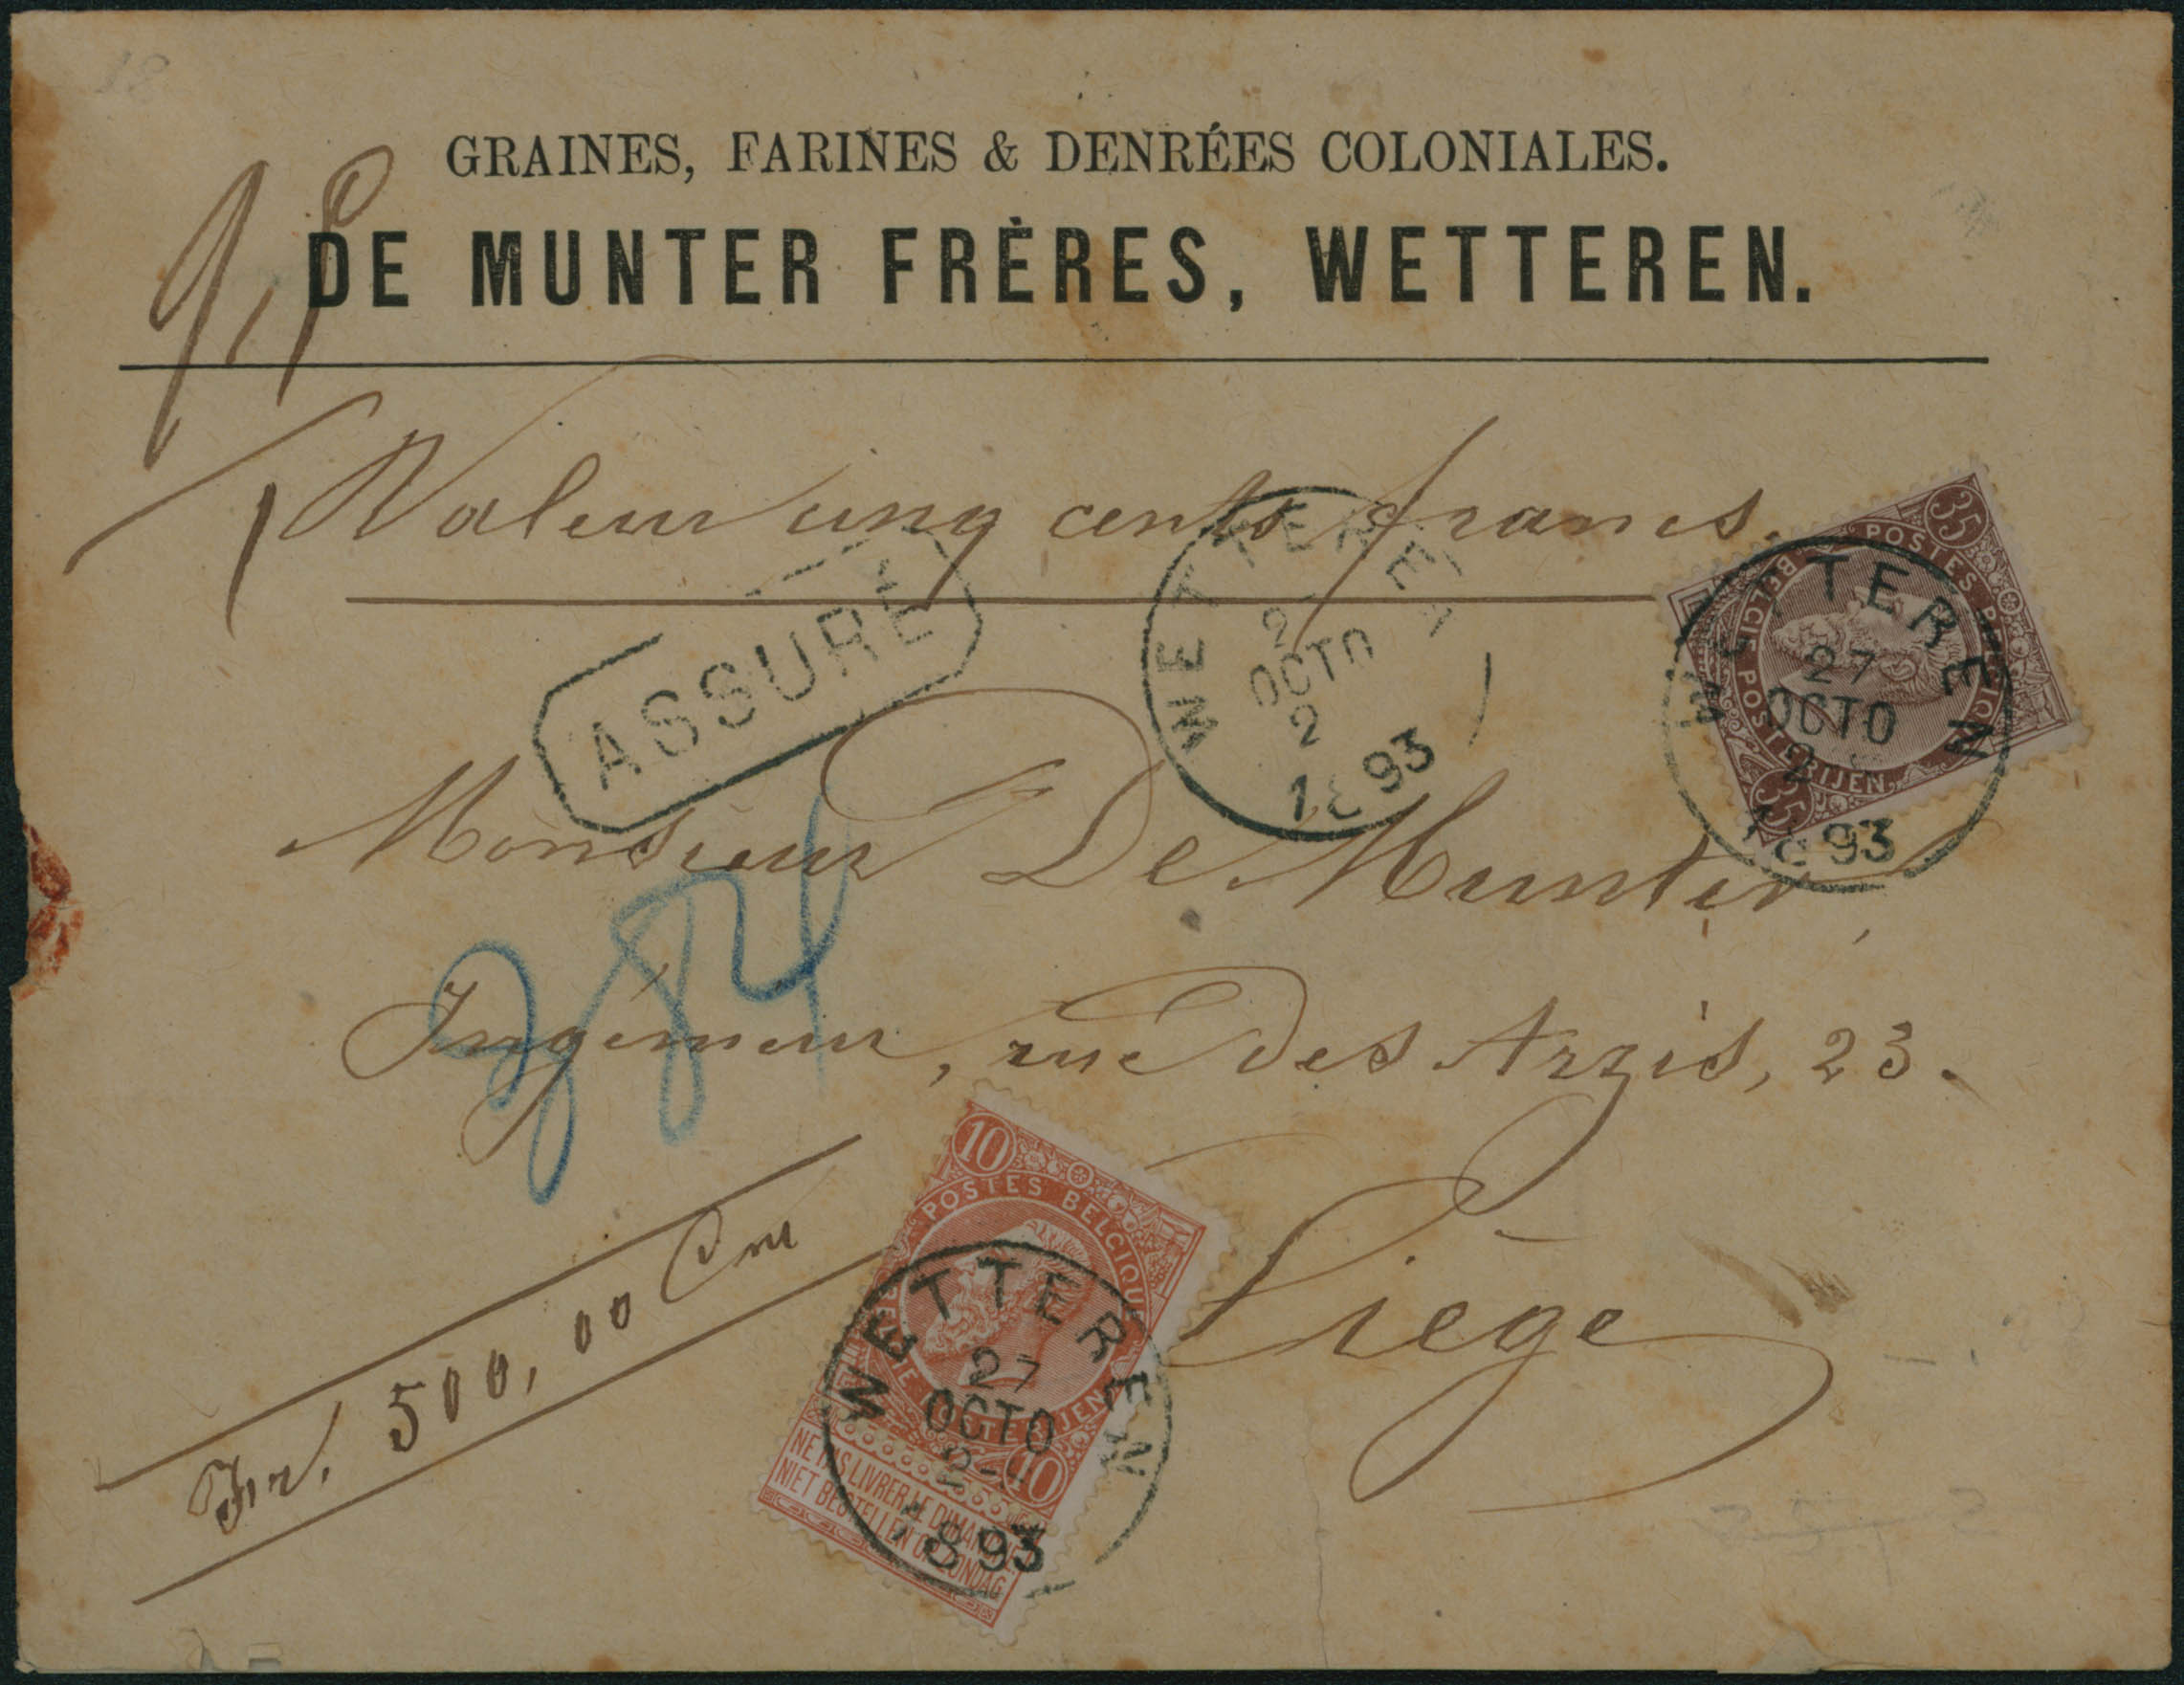 GRAINES, FARINES & DENRÉES COLONIALES.
DE MUNTER FRÈRES, WETTEREN.
Valeur cinq cents francs.
ASSURÉ
WETTEREN
2
OCTO
2
1893
35
POSTES BELGIQUE
BELGIE POSTERIJEN
35
WETTEREN
27
OCTO
2
1893
Monsieur De Munter,
384
Ingénieur, rue des Arzis, 23.
Liége
Fr. 500,00 Cms
10
POSTES BELGIQUE
10
NE PAS LIVRER LE DIMANCHE
NIET BESTELLEN OP ZONDAG
WETTEREN
27
OCTO
2-
1893